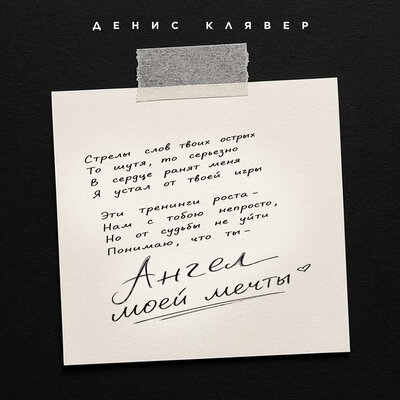 ДЕНИС КЛЯВЕР
Стрелы слов твоих острых
То шутя, то серьезно
В сердце ранят меня
Я устал от твоей игры
Эти тренинги роста–
Нам с тобою непросто,
Но от судьбы не уйти
Понимаю, что ты–
Ангел
моей мечты